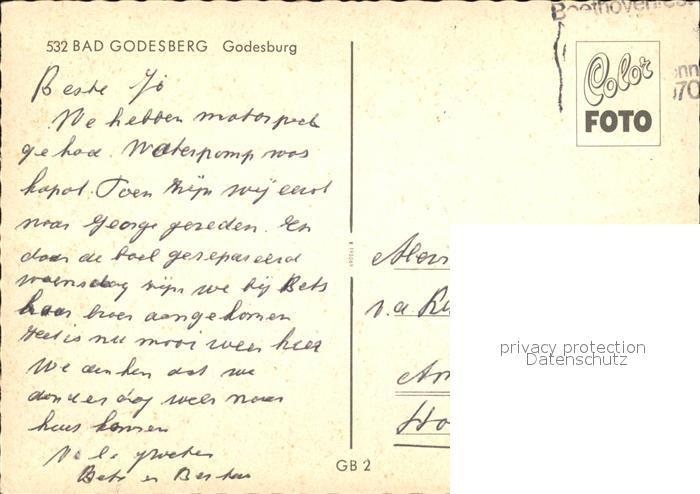 532 BAD GODESBERG Godesburg
Beste Jo
We hebben motorpech
gehad. Waterpomp was
kapot. Toen zijn wij eerst
naar George gereden. En
daar de boel gerepareerd
woensdag zijn we bij Bets
haar broer aangekomen
Het is nu mooi weer hier
We denken dat we
donderdag weer naar
huis komen
Vele groeten
Bets en
Beethovenfest
Color
FOTO
v.d.
privacy protection
Datenschutz
GB 2